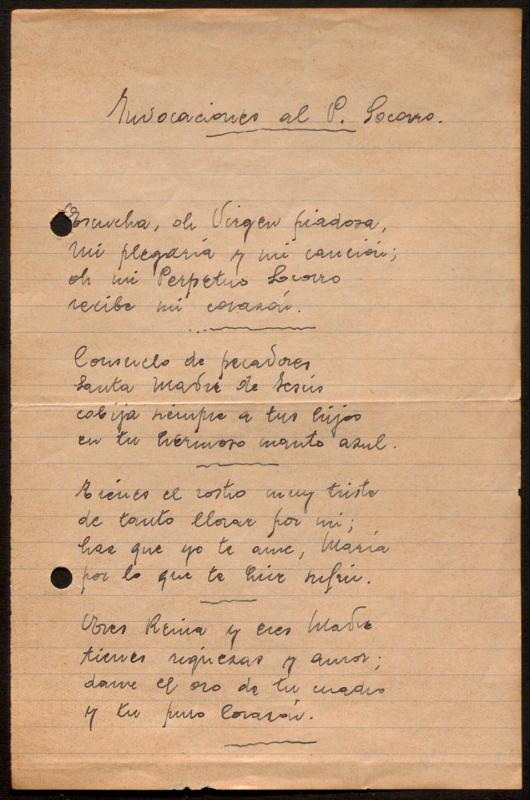 Invocaciones al P. Socorro.
Escucha, oh Virgen piadosa,
mi plegaria y mi canción;
oh mi Perpetuo Socorro
recibe mi corazón.
Consuelo de pecadores
Santa Madre de Jesús
cobija siempre a tus hijos
en tu hermoso manto azul.
Tienes el rostro muy triste
de tanto llorar por mi;
haz que yo te ame, María
por lo que te hice sufrir.
Eres Reina y eres Madre
tienes riquezas y amor;
dame el oro de tu cuadro
y tu puro Corazón.